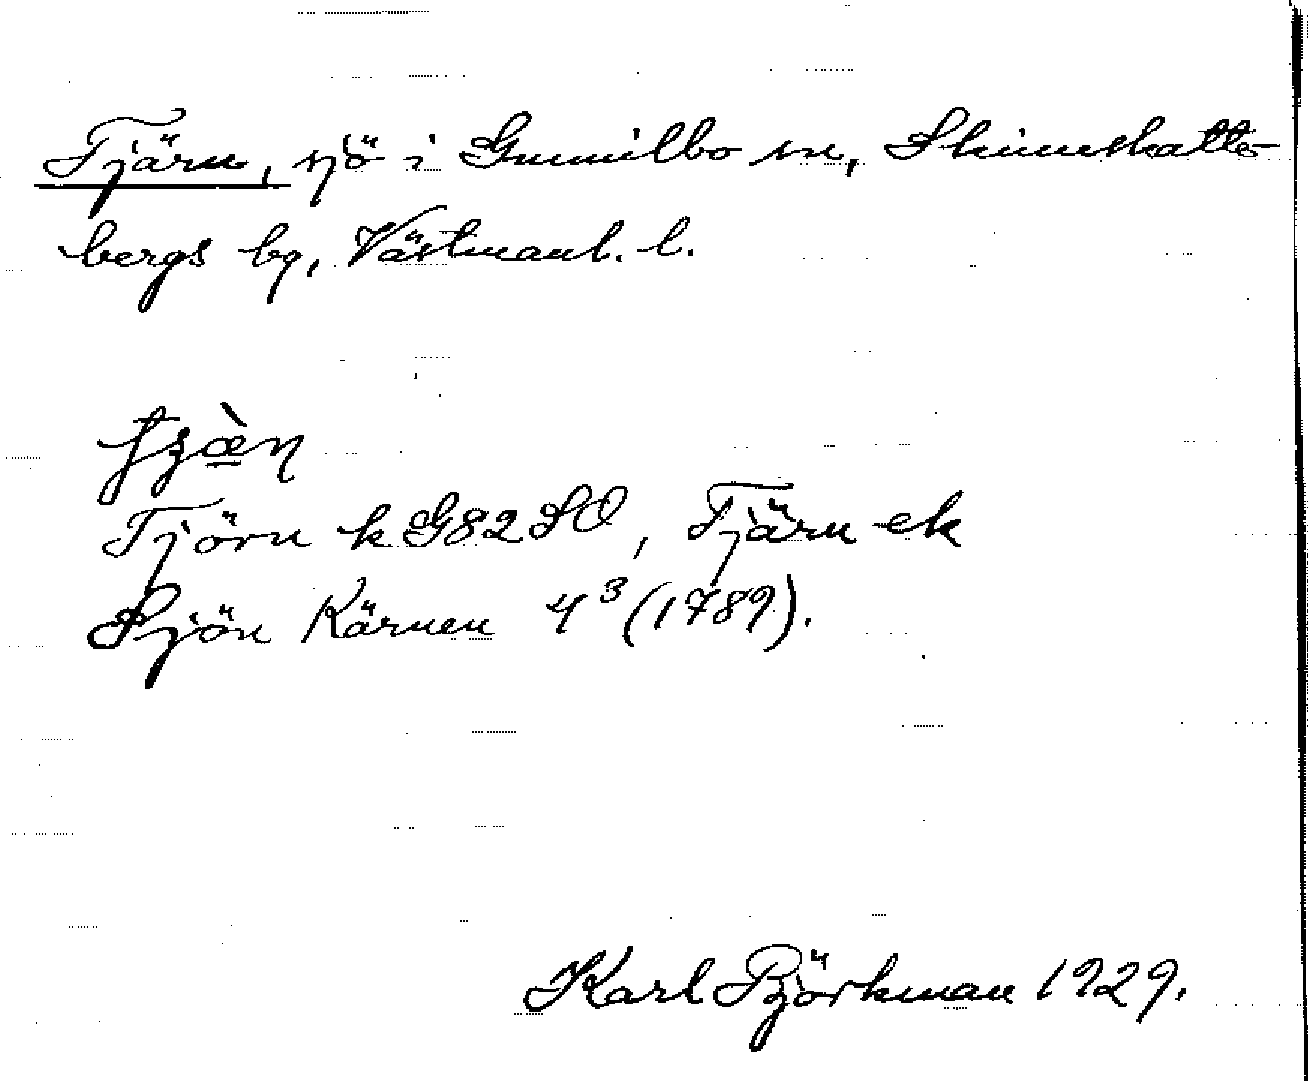 Tjärn, sjö i Gunnilbo sn, Skinnskatte-
bergs bg, Västmanl. l.
Tjörn k G82SO, Tjärn ek
Sjön Kärnen 4³ (1789).
Karl Björkman 1929.